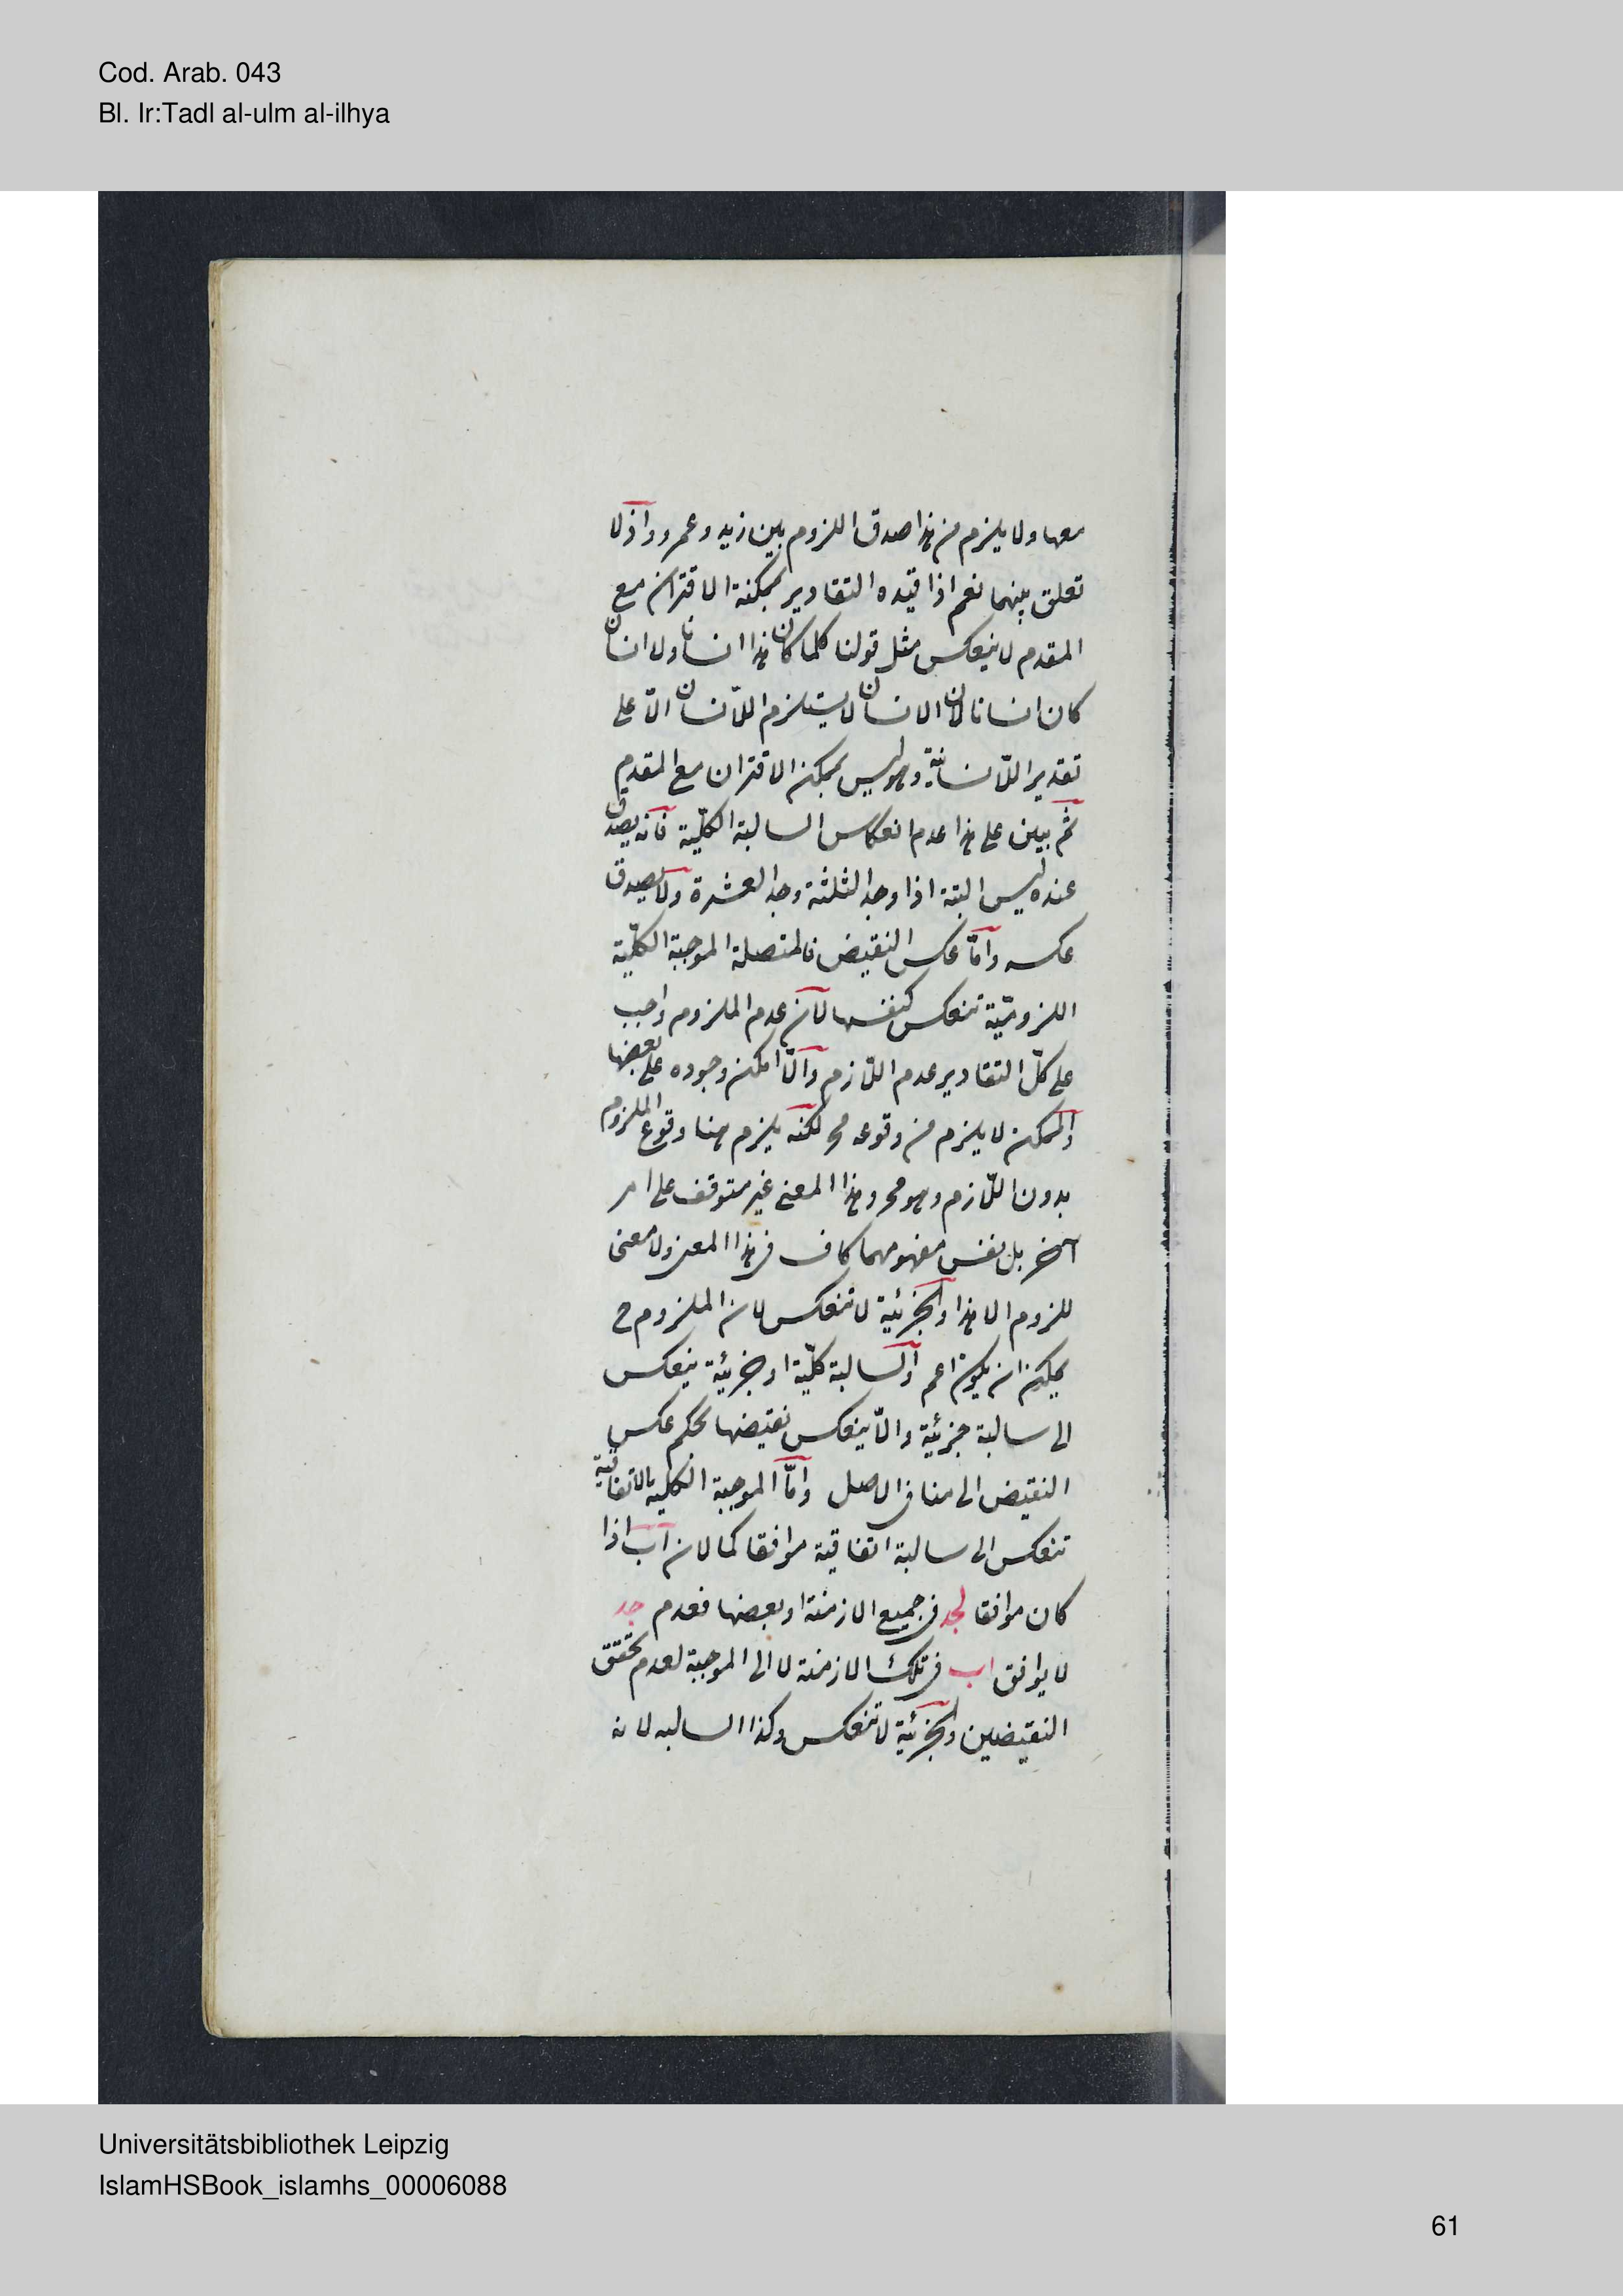 Cod. Arab. 043
Bl. Ir:Tadl al-ulm al-ilhya
معها ولا يلزم من هذا صدق اللزوم بين زيد وعمرو واذ لا
تعلق بينهما نعم اذا قيده التقادير بممكنة الاقتران مع
المقدم لا ينعكس مثل قولنا كلما كان هذا انسانا ولا انسان
كان انسانا لان الانسان لا يستلزم اللاانسان الا على
تقدير اللاانسانية وهو ليس بممكن الاقتران مع المقدم
ثم يبين على هذا عدم انعكاس السالبة الكلّية فانه يصدق
عنده ليس البتة اذا وجد الثلثة وجد العشرة ولا يصدق
عكسه وامّا عكس النقيض فالمتصلة الموجبة الكلّية
اللزوميّة تنعكس كنفسها لان عدم الملزوم واجب
على كلّ التقادير عدم اللّازم والّا امكن وجوده على بعضها
والممكن لا يلزم من وقوعه مح لكنه يلزم هنا وقوع الملزوم
بدون اللّازم وهو مح وهذا المعنى غير متوقف على امر
آخر بل نفس مفهومهما كاف في هذا المعنى ولا معنى
للزوم الا هذا والجزئية لا تنعكس لان الملزوم ح
يمكن ان يكون اعم والسالبة كلّية او جزئية ينعكس
الى سالبة جزئية والّا ينعكس نقيضها بحكم عكس
النقيض الى منافى الاصل وامّا الموجبة الكلية الاتفاقية
تنعكس الى سالبة اتفاقية موافقا كما لان اب اذا
كان موافقا لجد في جميع الازمنة او بعضها فعدم جد
لا يوافق اب في تلك الازمنة لا الى الموجبة لعدم تحقق
النقيضين والجزئية لا تنعكس وكذا السالبه لانه
Universitätsbibliothek Leipzig
IslamHSBook_islamhs_00006088
61